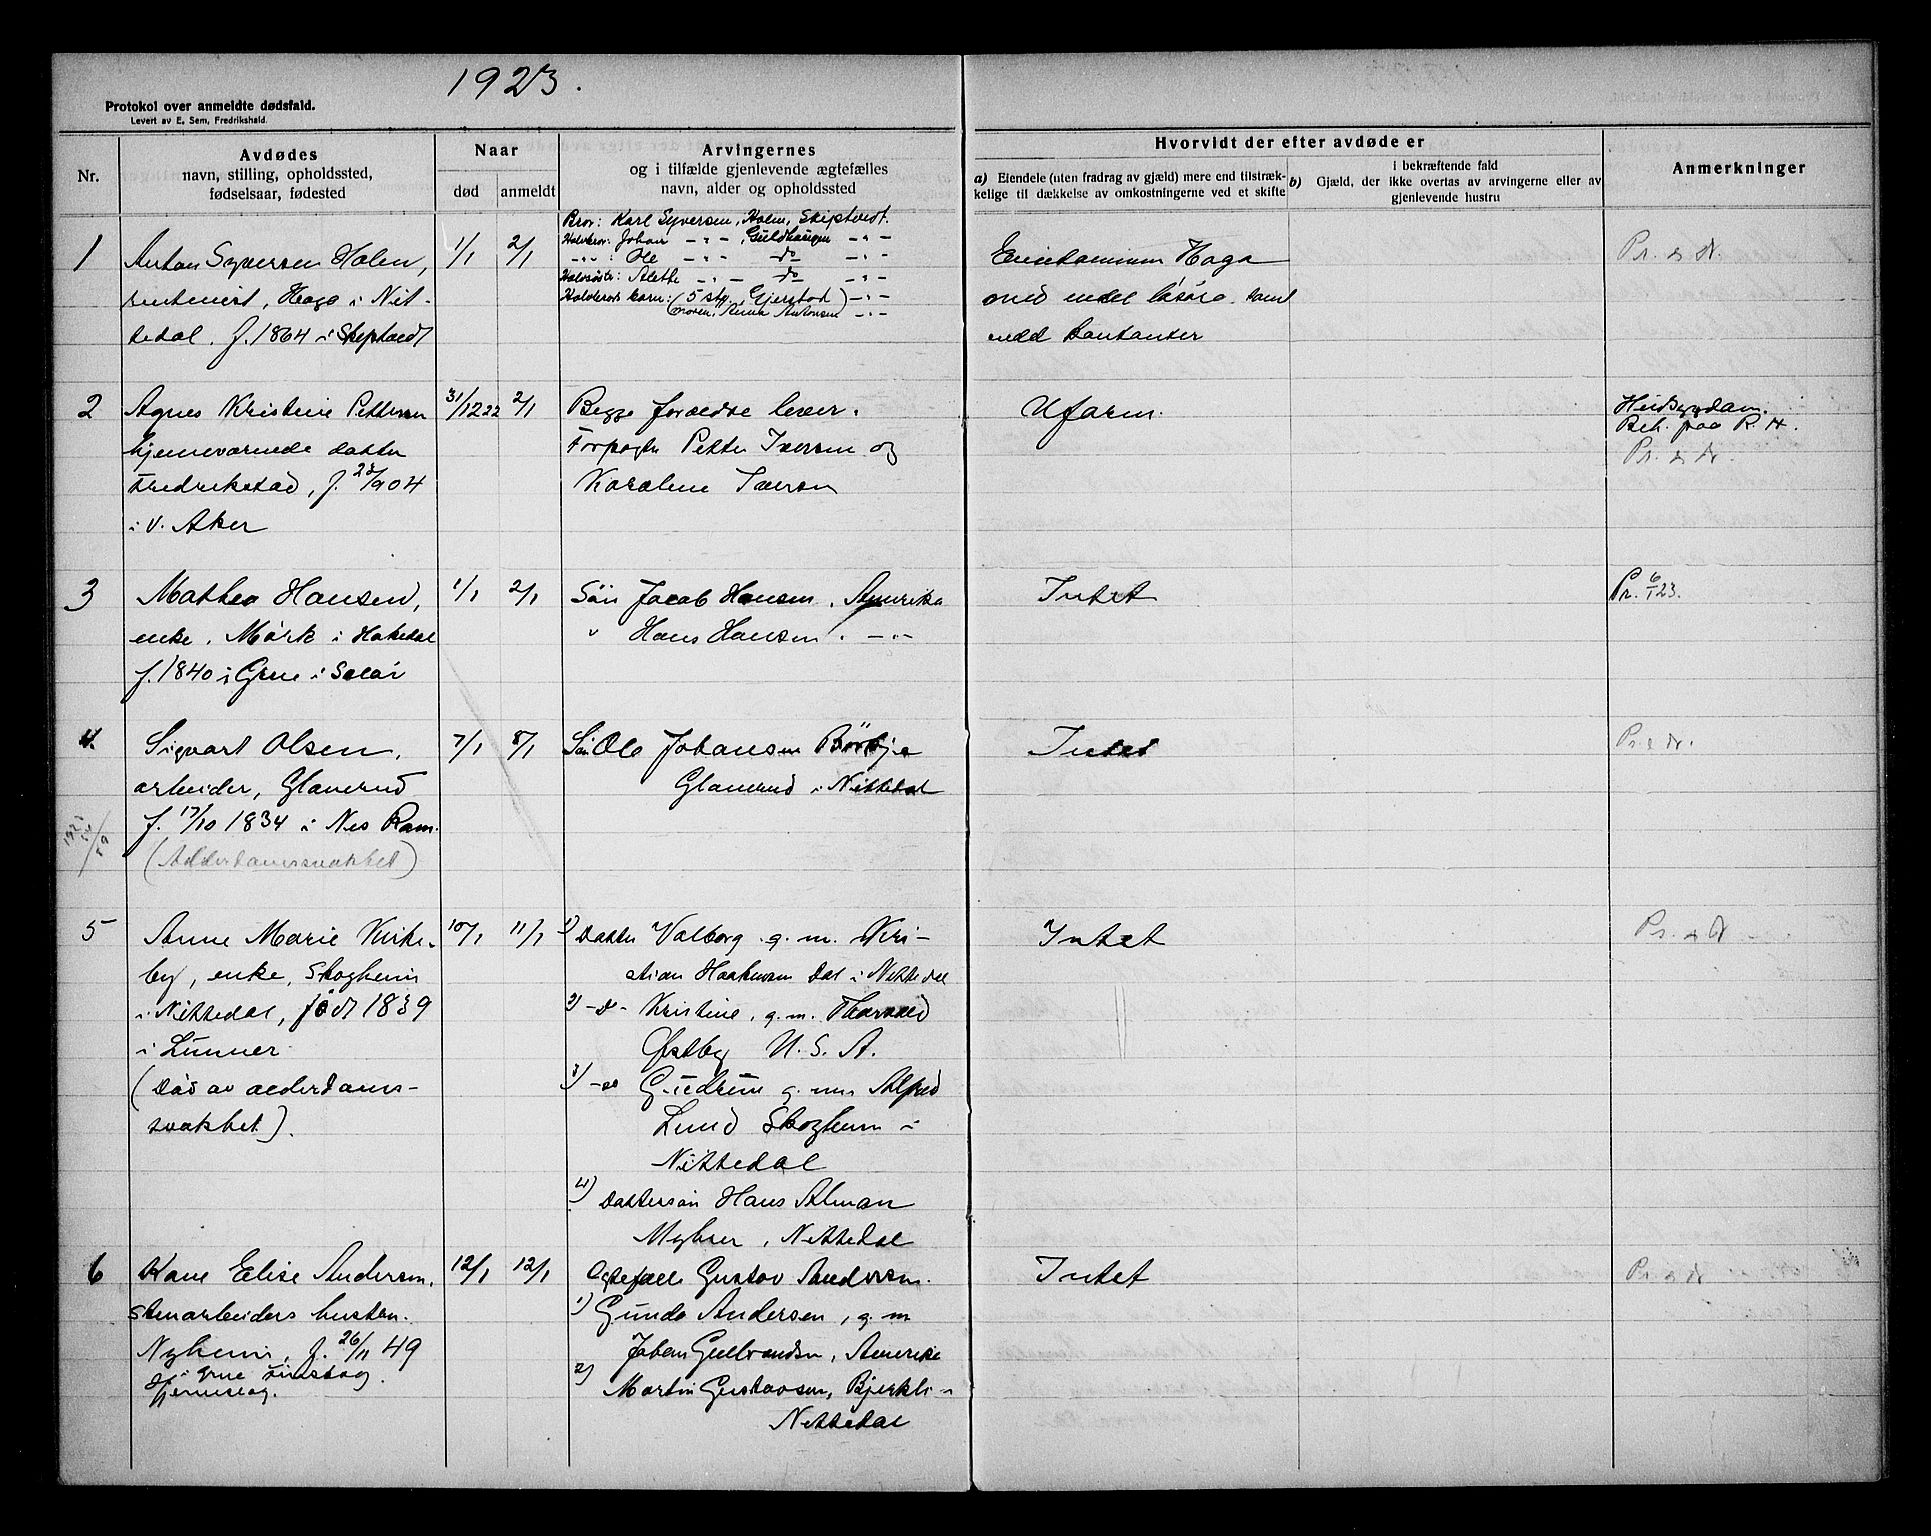 1923.
Protokol over anmeldte dødsfald.
Levert av E. Sem, Fredrikshald.
Nr.
Avdødes
navn, stilling, opholdssted,
fødselsaar, fødested
Naar
død
anmeldt
Arvingernes
og i tilfælde gjenlevende ægtefælles
navn, alder og opholdssted
Hvorvidt der efter avdøde er
a) Eiendele (uten fradrag av gjæld) mere end tilstræk-
kelige til dækkelse av omkostningerne ved et skifte
b) Gjæld, der i bekræftende fald
ikke overtas av arvingerne eller av
gjenlevende hustru
Anmerkninger
1
Anton Syversen Holen,
rentenist, Haga i Nit-
tedal. f. 1864 i Skiptvedt
1/1
2/1
Bror: Karl Syversen, Holm, Skiptvedt.
Halvbror: Johan -"- , Guldhaugen -"-
-"- : Ole -"- do -"-
Halvsøster: Alette -"- do -"-
Halvbrors barn: (5 stk. Gjerstad) -"-
Eiendommen Haga
med endel løsøre samt
endel kontanter
Pr. & dr.
2
Agnes Kristine Pettersen
hjemmeværende datter
Fredrikstad, f. 28/9 04
i V. Aker
31/12 22
2/1
Begge forældre lever.
Forpagter Petter Iversen og
Karoline Iversen
Uform.
Beh. paa R. H.
Pr. & dr.
3
Mathea Hansen,
enke, Mørk i Hakedal
f. 1840 i Grue i Solør
1/1
2/1
Søn Jacob Hansen, Amerika
" Hans Hansen. -"-
Intet
Pr. 6/1 23.
4.
Sigvart Olsen,
arbeider, Glanerud
f. 17/10 1834 i Nes Rom.
(Alderdomssvakhet)
7/1
8/1
Søn Ole Johansen
Glanerud i Nittedal
Intet
Pr. & dr.
5
Anne Marie Kirke-
by, enke, Skogheim
i Nittedal, født 1839
i Lunner
(Død av alderdoms-
svakhet).
10/1
11/1
1) Datter Valborg g. m. Kri-
stian Haakensen Dal i Nittedal
2) -d- Kristine, g. m. Thorvald
Østby U. S. A.
3) -do Gudrun g. m. Alfred
Lund Skogheim i
Nittedal
4) Dattersøn Hans Alman
Myhrer, Nittedal
Intet
Pr. & dr
6
Kari Elise Andersen,
stenarbeiders hustru.
Nyheim, f. 26/11 49
i Grue Finskog.
12/1
12/1
Egtefælle Gustav Andersen.
1) Gunda Andersen, g. m
Johan Gulbrandsen, Amerika
2) Martin Gustavsen, Bjerkli i
Nittedal
Intet
Pr. & dr